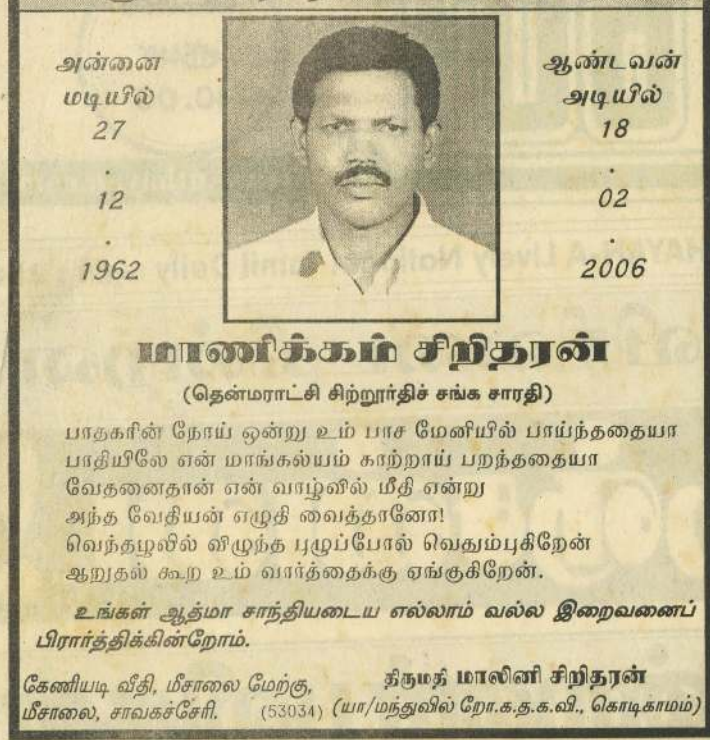 அன்னை
மடியில்
27
.
12
.
1962
ஆண்டவன்
அடியில்
18
.
02
.
2006
மாணிக்கம் சிறிதரன்
(தென்மராட்சி சிற்றூர்திச் சங்க சாரதி)
பாதகரின் நோய் ஒன்று உம் பாச மேனியில் பாய்ந்ததையா
பாதியிலே என் மாங்கல்யம் காற்றாய் பறந்ததையா
வேதனைதான் என் வாழ்வில் மீதி என்று
அந்த வேதியன் எழுதி வைத்தானோ!
வெந்தழலில் விழுந்த புழுப்போல் வெதும்புகிறேன்
ஆறுதல் கூற உம் வார்த்தைக்கு ஏங்குகிறேன்.
உங்கள் ஆத்மா சாந்தியடைய எல்லாம் வல்ல இறைவனைப்
பிரார்த்திக்கின்றோம்.
கேணியடி வீதி, மீசாலை மேற்கு,
மீசாலை, சாவகச்சேரி. (53034)
திருமதி மாலினி சிறிதரன்
(யா/மந்துவில் றோ.க.த.க.வி., கொடிகாமம்)